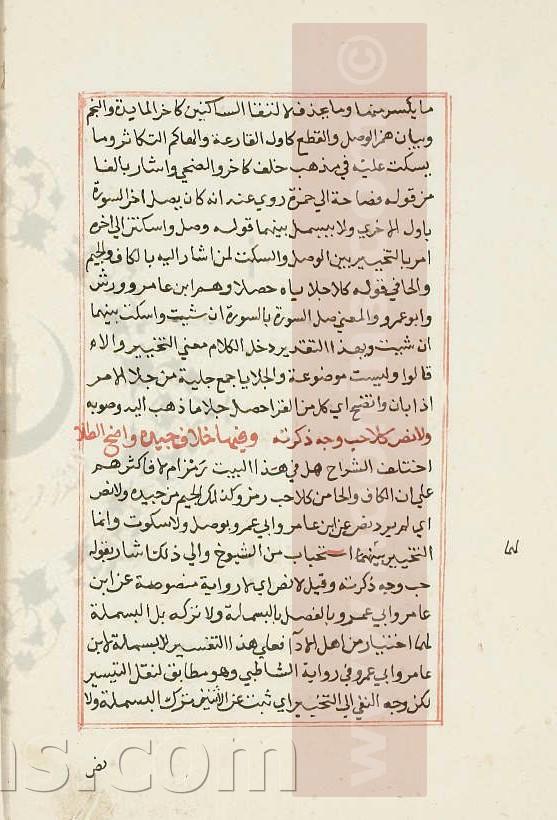 ما يكسر منها وما يحذف لالتقا الساكنين كاخر المايدة والنجم
وبيان همز الوصل والقطع كاول القارعة والهاكم التكاثر وما
يسكت عليه في مذهب خلف كاخر والضحي واشار بالفا
من قوله فصاحة الي حمزة روي عنه انه كان يصل اخر السورة
باول الاخري ولا يبسمل بينهما قوله وصل واسكتن الي اخره
امر بالتخيير بين الوصل والسكت لمن اشار اليه بالكاف والجيم
والحا في قوله كلا جلاياه حصلا وهم ابن عامر وورش
وابو عمرو والمعني صل السورة بالسورة ان شيت واسكت بينهما
ان شيت وبهذا التقدير دخل الكلام معني التخيير والا
قالوا وليست موضوعة والجلايا جمع جلية من جلا الامر
اذا بان واتضح اي كل من القرا حصل جلا ما ذهب اليه وصوبه
ولا نص كلا حب وجه ذكرته وفيها خلاف جيده واضح الطلا
اختلف الشراح هل في هذا البيت رمز ام لا فاكثرهم
علي ان الكاف والحا من كلا حب رمز وكذلك الجيم من جيده ولا نص
اي لم يرد نص عن ابن عامر وابي عمرو بوصل ولا سكوت وانما
التخيير بينهما استحباب من الشيوخ والي ذلك اشار بقوله
حب وجه ذكرته وقيل لا نص اي لا رواية منصوصة عن ابن
عامر وابي عمرو بالفصل بالبسملة ولا تركه بل البسملة
لهما اختيار من اهل الادآ فعلي هذا التفسير لا بسملة لابن
عامر وابي عمرو في رواية الشاطبي وهو مطابق لنقل التيسير
لكن وجه النفي الي التخيير اي ثبت عن الاثنين ترك البسملة ولا
لهما
نص
www.
©
ns.com